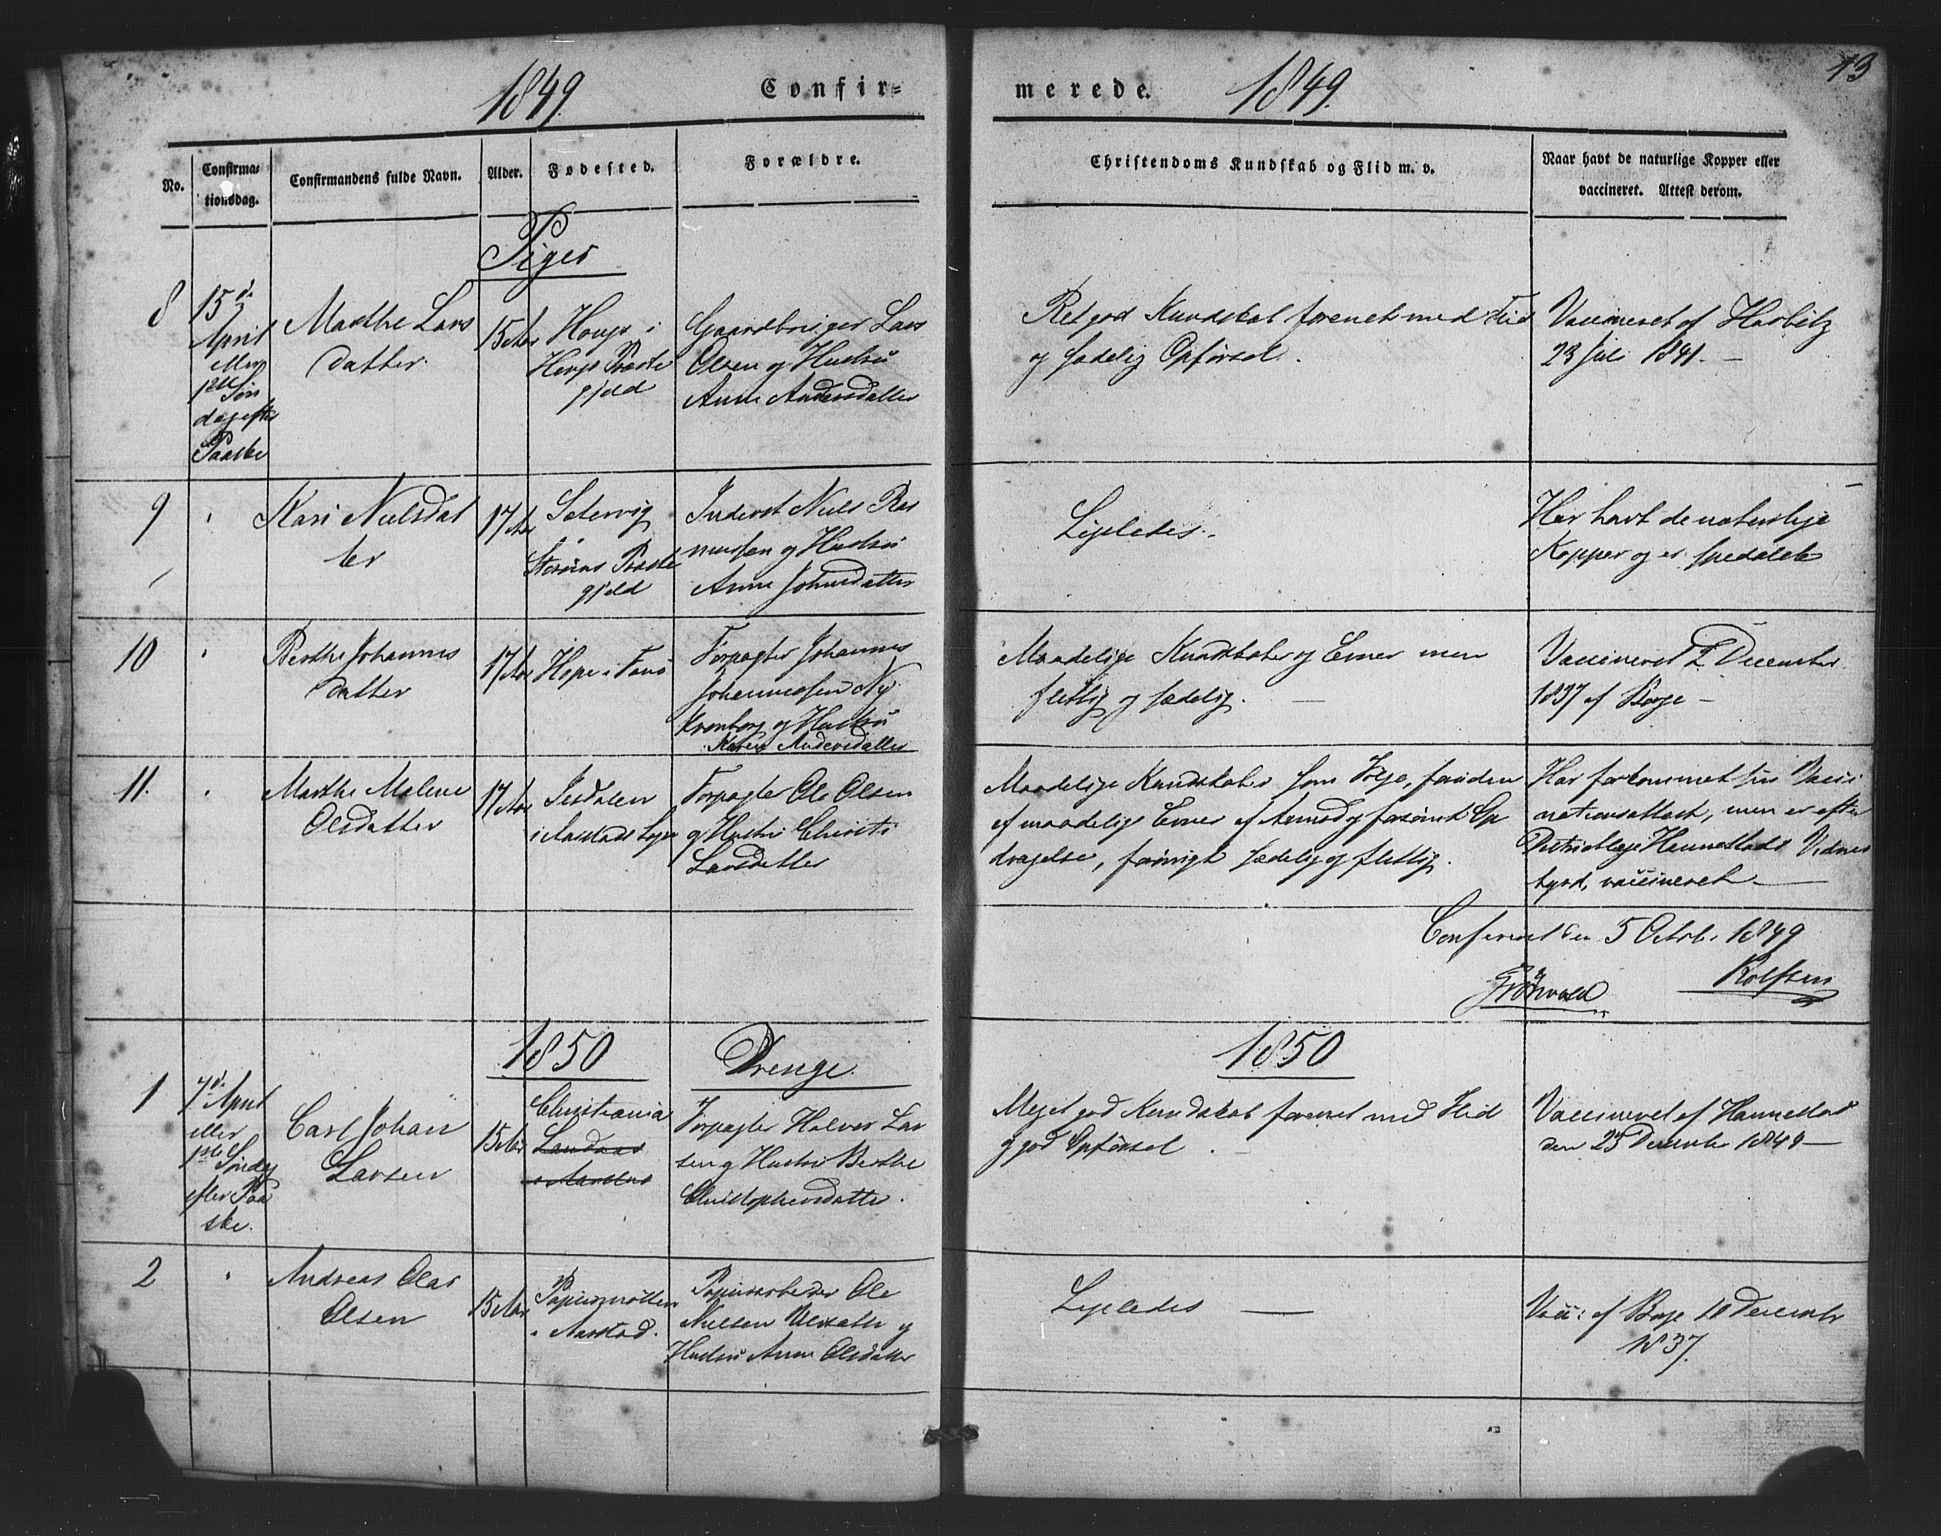 13
1849. Confir=
merede. 1849.
No.
Confirma=
tionsdag.
Confirmandens fulde Navn.
Alder.
Fødested.
Forældre.
Christendoms Kundskab og Flid m. v.
Naar havt de naturlige Kopper eller
vaccineret. Attest derom.
Piger
8
15d.
April
eller
1ste Søn
dag efter
Paaske
Marthe Lars
datter
15 Aar
Houg i
Hougs Præste
gjeld
Gaardbruger Lars
Olsen og Hustru
Anne Andersdatter
Ret god Kundskab forenet med Flid
og sædelig Opførsel.
Vaccineret af Harbitz
23 Juli 1841. —
9
Kari Nielsdat
ter
17 Aar
Setervig
i
Præste
gjeld
Inderst Niels Ras
mussen og Hustru
Anne Johnsdatter
Ligeledes.
Har havt de naturlige
Kopper og er spedalsk
10
Berthe Johannes
datter
17 Aar
Hope i Fane
Forpagter Johannes
Johannessen Ny
Kronborg og Hustru
Karen Andersdatter
Maadelige Kundskaber og Evner men
flittig og sædelig. —
Vaccineret 2 December
1837 af Boye —
11.
Marthe Malene
Olsdatter
17 Aar
Isdalen
i Aarstads Sogn
Forpagter Ole Olsen
og Hustru Christi
Larsdatter
Maadelige Kundskaber som Følge, forinden
af maadelige Evner af Armod og forsømt Op
dragelse, forøvrigt sædelig og flittig.
Har forkommet sin Vacci
nationsattest, men er efter
Hannestads Vidnes
byrd, vaccineret —
Confereret den 5 Octob. 1849
Grønvold Rolfsen
1850 Drenge.
1850
1
7d. April
eller
1ste Søndag
efter Paa
ske.
Carl Johan
Larsen
15 Aar
Christiania
Landaas
i Aarstad
Forpagter Halvor Lar
sen og Hustru Berthe
Christophersdatter.
Meget god Kundskab forenet med Flid
og god Opførsel.
Vaccineret af Hannestad
den 23 December 1849 —
2
Andreas Olai
Olsen
15 Aar
Papiirmøllen
i Aarstad.
Papiirarbeider Ole
Nielsen og
Hustru Anne Olsdatter
Ligeledes —
Vacc: af Boye 10 December
1837.